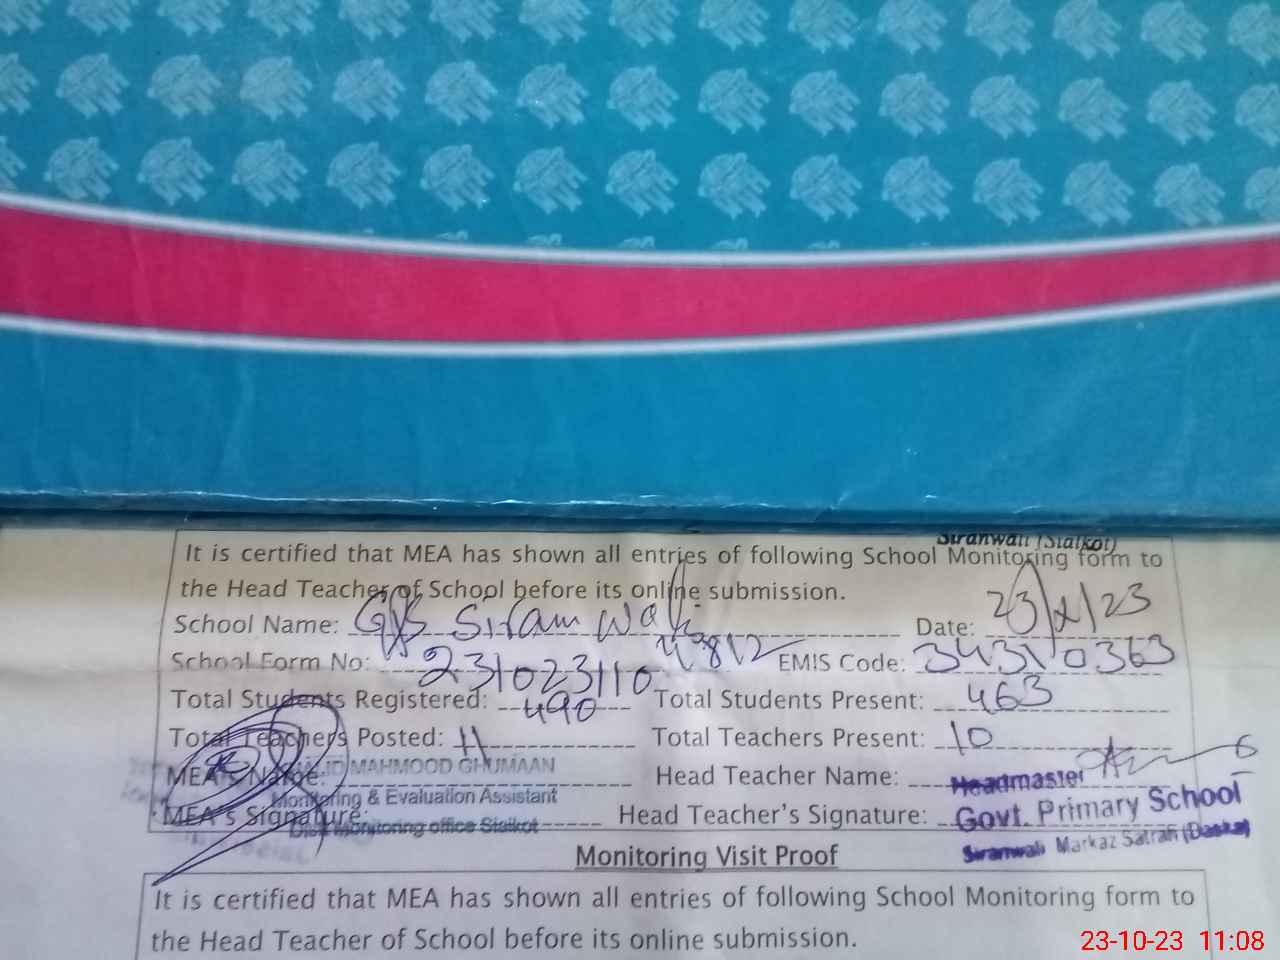 Siranwali (Sialkot)
It is certified that MEA has shown all entries of following School Monitoring form to
the Head Teacher of School before its online submission.
School Name: GPS Siranwali Date: 23/X/23
School Form No: 23102311049812 EMIS Code: 34310363
Total Students Registered: 490 Total Students Present: 463
Total Teachers Posted: 11 Total Teachers Present: 10
MEA's Name: MAHMOOD GHUMAAN Head Teacher Name: Headmaster
Monitoring & Evaluation Assistant
MEA's Signature: Head Teacher's Signature: Govt. Primary School
Distt Monitoring office Sialkot Siranwali Markaz Satrah (Daska)
Monitoring Visit Proof
It is certified that MEA has shown all entries of following School Monitoring form to
the Head Teacher of School before its online submission.
23-10-23 11:08